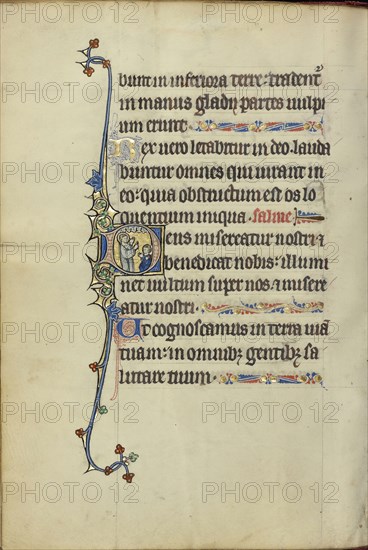 bunt in inferiora terre: tradent
in manus gladij partes uulpi
um erunt
Rex uero letabitur in deo: lauda
buntur omnes qui iurant in
eo: quia obstructum est os lo
quentium iniqua. salme
Deus misereatur nostri ⁊
benedicat nobis: illumi
net uultum super nos ⁊ misere
atur nostri.
Ut cognoscamus in terra uiā
tuam: in omnibꝫ gentibꝫ sa
lutare tuum.
PHOTO 12